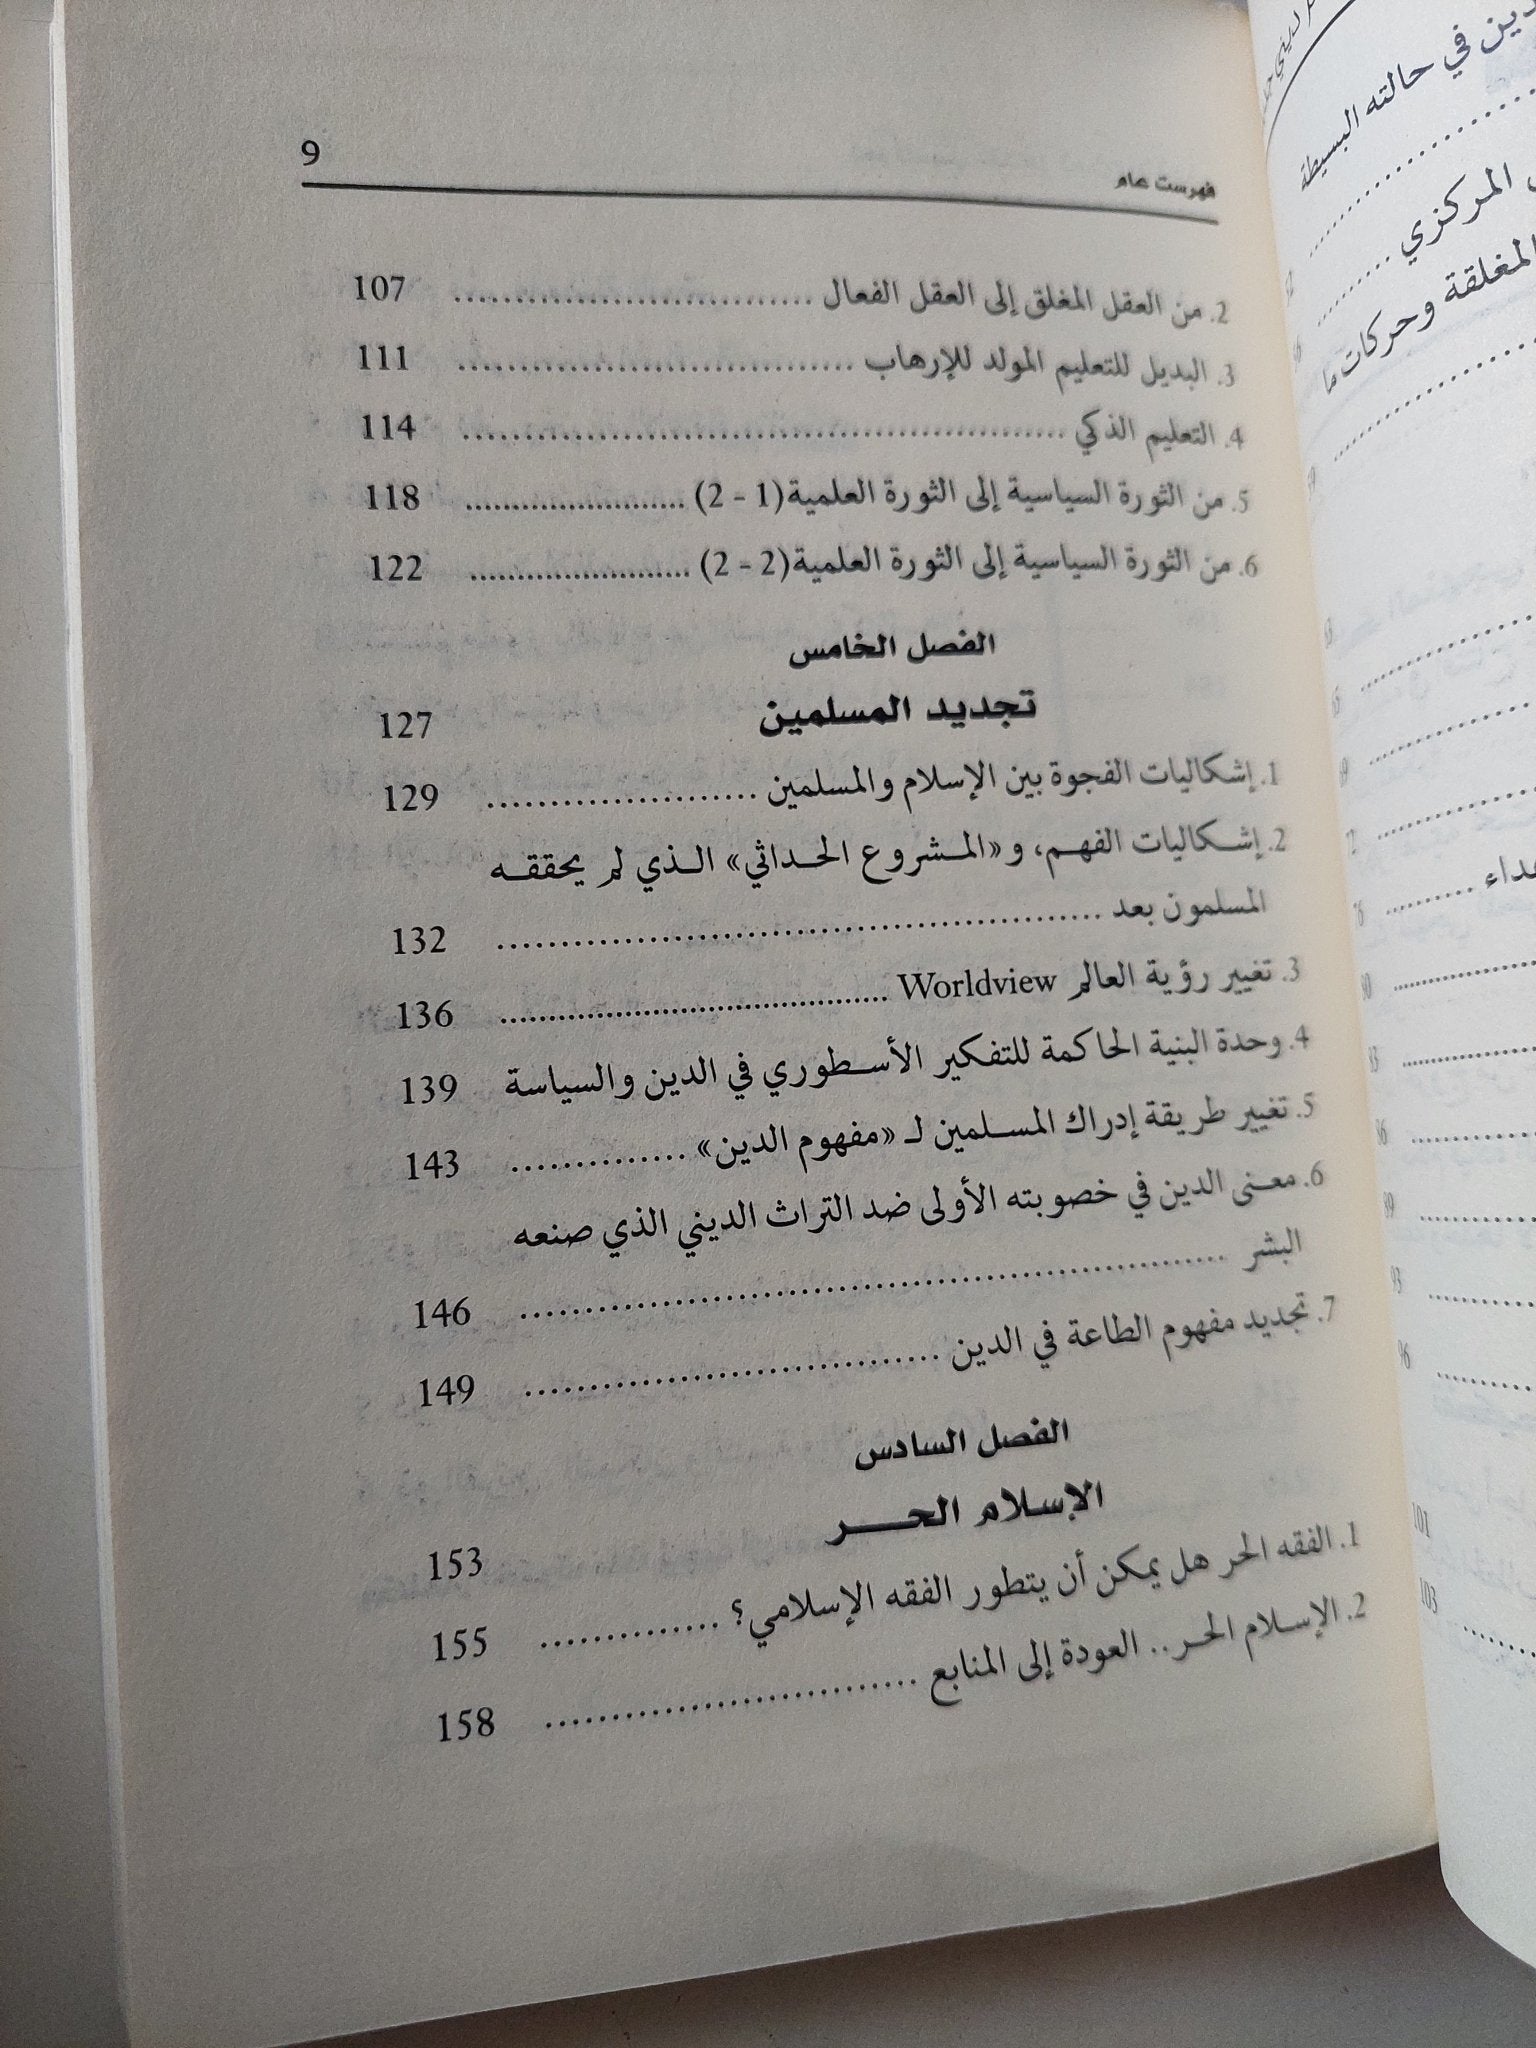 فهرست عام 9
2. من العقل المغلق إلى العقل الفعال .............................. 107
3. البديل للتعليم المولد للإرهاب ................................. 111
4. التعليم الذكي .................................................. 114
5. من الثورة السياسية إلى الثورة العلمية(1 - 2) ....................... 118
6. من الثورة السياسية إلى الثورة العلمية(2 - 2) ....................... 122
الفصل الخامس
تجديد المسلمين 127
1. إشكاليات الفجوة بين الإسلام والمسلمين ...................... 129
2. إشـكاليات الفهـم، و«المـشروع الحـداثي» الـذي لم يحققـه
المسلمون بعد .................................................. 132
3. تغيير رؤية العالم Worldview ........................................ 136
4. وحدة البنية الحاكمة للتفكير الأسـطوري في الدين والسياسة 139
5. تغيير طريقة إدراك المسـلمين لـ «مفهوم الدين» .............. 143
6. معـنى الدين في خصوبته الأولى ضد التراث الديني الذي صنعه
البشر .......................................................... 146
7. تجديد مفهوم الطاعة في الدين .................................. 149
الفصل السادس
الإسلام الحـــر 153
1. الفقه الحر هل يمكن أن يتطور الفقه الإسلامي؟ .............. 155
2. الإسـلام الحـر.. العودة إلى المنابع ............................. 158
دين في حالته البسيطة
المركزي
المغلقة وحركات ما
96
101
103